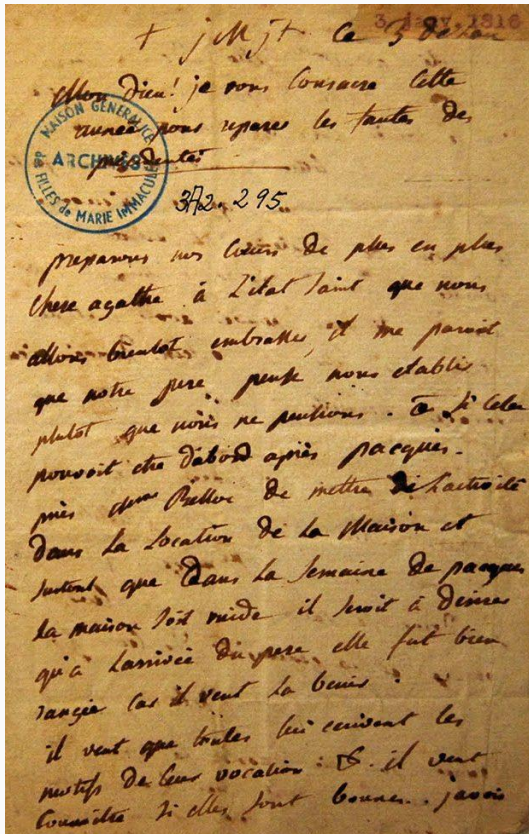 3 janv 1816
+ j M j + Ce 3 de l'an
Mon Dieu! je vous Consacre Cette
année pour reparer les fautes des
précédentes
MAISON GENERALICE
ARCHIVES
de FILLES de MARIE IMMACULÉE
3A2.295
preparons nos Cœurs de plus en plus
chere agathe à L'état saint que nous
allons bientot embrasser, il me paroit
que notre pere pense nous etablir
plutot que nous ne pensions. Ô si Cela
pouvoit etre d'abord après pacques.
priés Mme Belloc de mettre de L'activité
dans La Location de La Maison et
surtout que dans La semaine de pacques
La maison soit vuide il seroit à désirer
qu'à L'arrivée du pere elle fut bien
rangée Car il veut La benir.
il veut que toutes lui ecrivent les
motifs de leur vocation. il veut
Connoitre si elles sont bonnes. j'avois